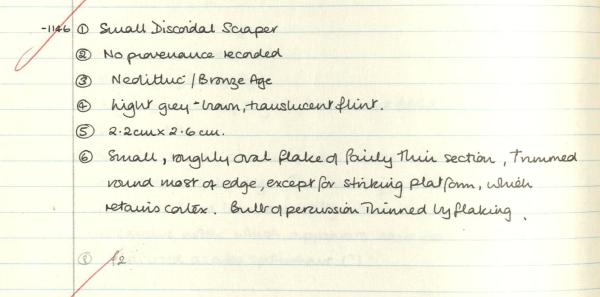 -1146 ① Small Discoidal Scraper
② No provenance recorded
③ Neolithic / Bronze Age
④ Light grey-brown, translucent flint.
⑤ 2.2cm x 2.6cm.
⑥ Small, roughly oval flake of fairly thin section, trimmed
round most of edge, except for striking platform, which
retains cortex. Bulb of percussion thinned by flaking.